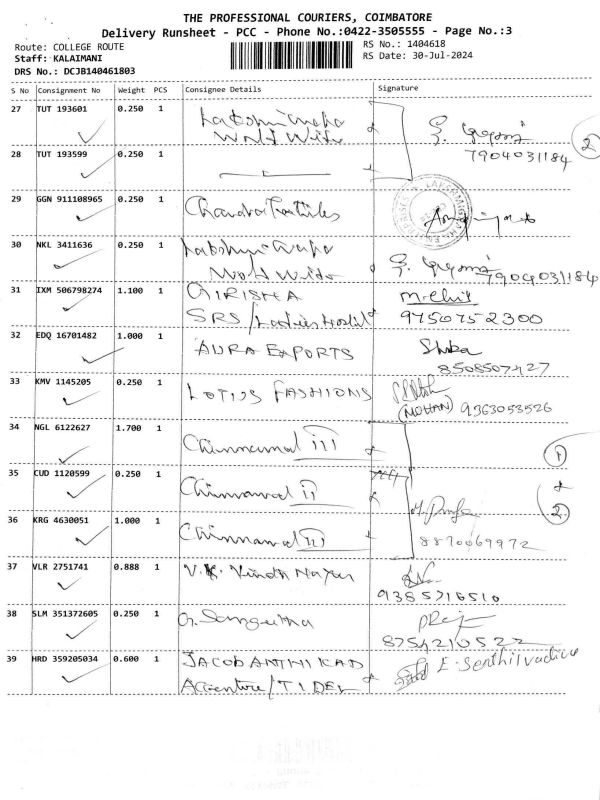 THE PROFESSIONAL COURIERS, COIMBATORE
Delivery Runsheet - PCC - Phone No.:0422-3505555 - Page No.:3
Route: COLLEGE ROUTE RS No.: 1404618
Staff: KALAIMANI RS Date: 30-Jul-2024
DRS No.: DCJB140461803
S No Consignment No Weight PCS Consignee Details Signature
27 TUT 193601 0.250 1 Lakshmi
World Wide
7904031184 2
28 TUT 193599 0.250 1
29 GGN 911108965 0.250 1 Chandra Textiles
30 NKL 3411636 0.250 1 Lakshmi
World Wide 7904031184
31 IXM 506798274 1.100 1 GIRISHA
SRS / Ladies Hostel 9750752300
32 EDQ 16701482 1.000 1 AURA EXPORTS
8508507427
33 KMV 1145205 0.250 1 LOTUS FASHIONS
(MOHAN) 9363053526
34 NGL 6122627 1.700 1 Chinnamal III 1
35 CUD 1120599 0.250 1 Chinnamal II
2
36 KRG 4630051 1.000 1 Chinnamal II
8870069972
37 VLR 2751741 0.888 1 V.K.
9385716510
38 SLM 351372605 0.250 1 G. Sangeetha
8754210522
39 HRD 359205034 0.600 1 JACOB E. Senthilvadivu
Accenture / TIDEL